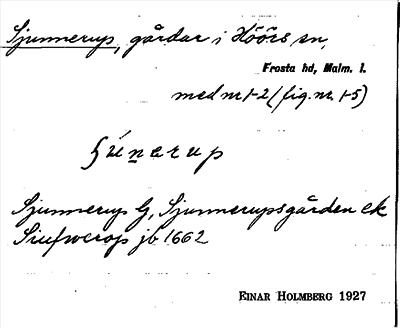 Sjunnerup, gårdar i Höörs sn,
Frosta hd, Malm. l.
med nr 1-2 (fig. nr. 1-5)
Sjunnerup G, Sjunnerupsgården ek
jb 1662
EINAR HOLMBERG 1927